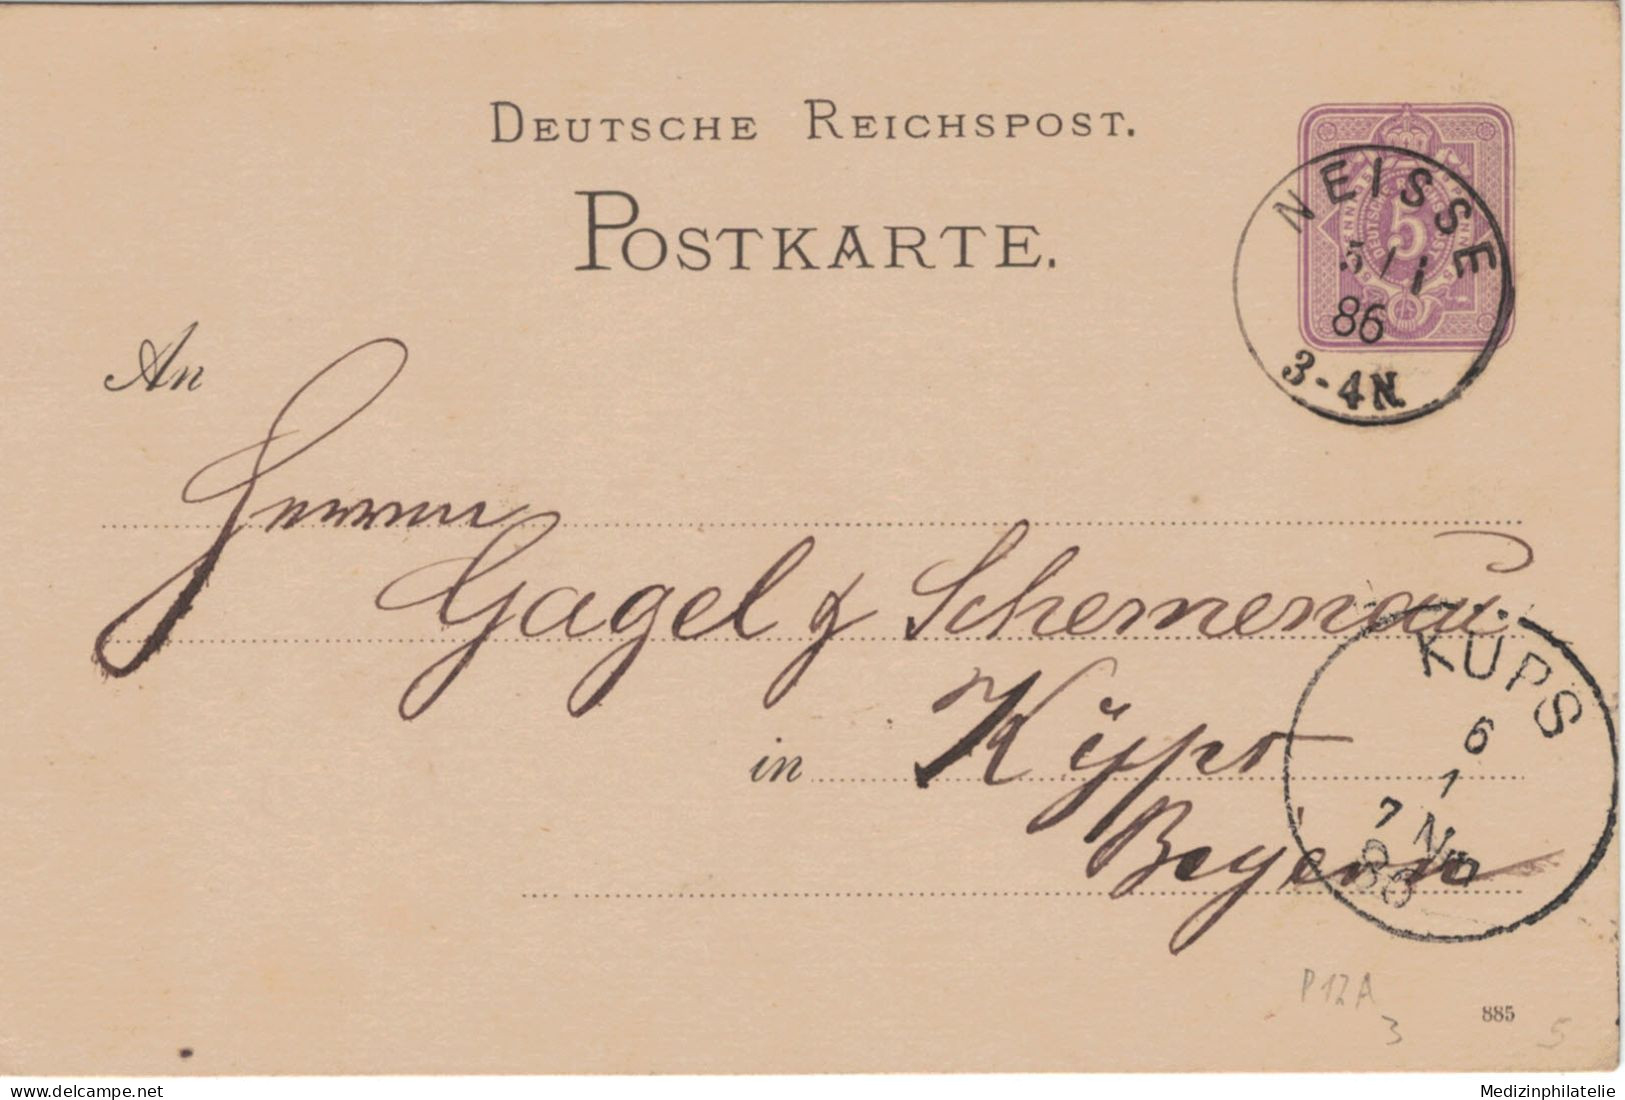 DEUTSCHE REICHSPOST.
POSTKARTE.
5 DEUTSCHE
NEISSE
5/1
86
3-4N.
An
Herren
Gagel & Schemenau
in Küps
Bayern
KÜPS
6
1
7 Nm
86
P12A
3
885
5
the-saleroom.com
Medizinphilatelie